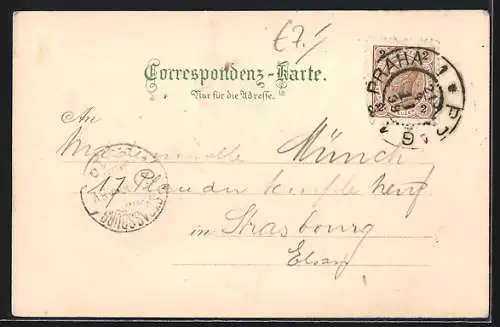 £7.-
Correspondenz-Karte.
Nur für die Adresse.
PRAHA 1
2 2
2 2
An
Mademoiselle Münch
17 Place du temple neuf
STRASSBURG
in Strasbourg
Elsass